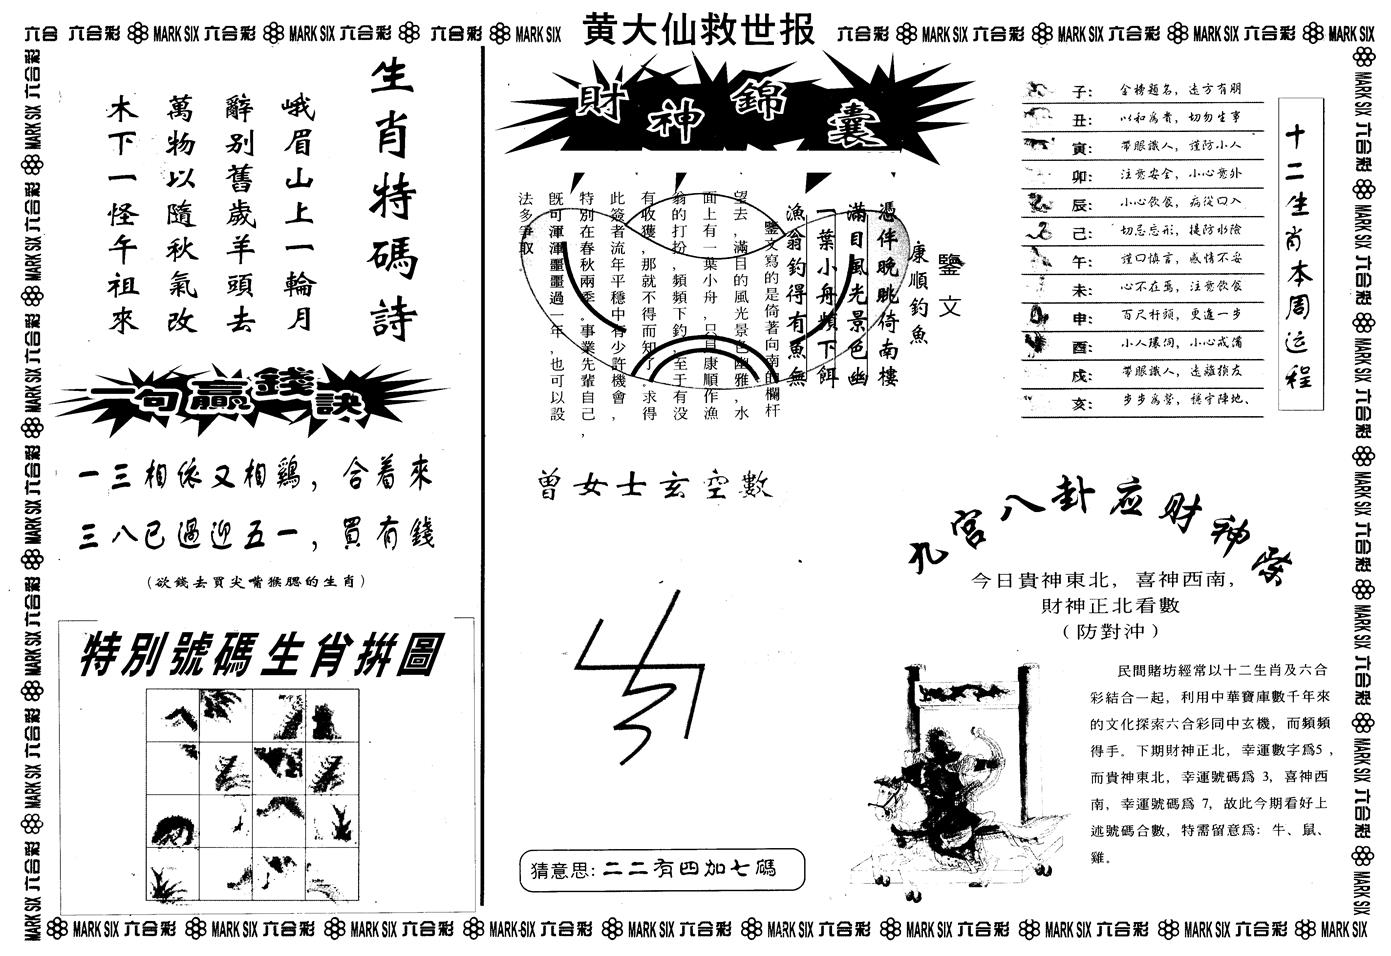 黄大仙救世报
六合 六合彩 MARK SIX 六合彩 MARK SIX 六合彩 六合彩 MARK SIX
六合彩 MARK SIX 六合彩 MARK SIX 六合彩 MARK SIX 六合彩 MARK SIX
生肖特碼詩
峨眉山上一輪月
辭别舊歲羊頭去
萬物以隨秋氣改
木下一怪午祖來
一句贏錢訣
一三相依又相鷄，合着來
三八已過迎五一，買有錢
(欲錢去買尖嘴猴腮的生肖)
特別號碼生肖拼圖
財神錦囊
鑒文
康順釣魚
憑伴晚眺倚南樓
滿目風光景色幽
一葉小舟頻下餌
漁翁釣得有魚無
鑒文寫的是倚著向南的欄杆
望去,滿目的風光景色幽雅,水
面上有一葉小舟,只見康順作漁
翁的打扮,頻頻下釣,至于有没
有收獲,那就不得而知了。求得
此簽者流年平穩中有少許機會,
特別在春秋兩季。事業先輩自己,
既可渾渾噩噩過一年,也可以設
法多爭取.
曾女士玄空數
猜意思:二二有四加七碼
十二生肖本周运程
子: 金榜題名，遠方有朋
丑: 以和爲貴，切勿生事
寅: 帶眼識人，謹防小人
卯: 注意安全，小心意外
辰: 小心飲食，病從口入
己: 切忌忘形，提防水險
午: 謹口慎言，感情不妥
未: 心不在焉，注意飲食
申: 百尺杆頭，更進一步
酉: 小人環伺，小心戒備
戍: 帶眼識人，遠離損友
亥: 步步爲營，穩守陣地、
九宫八卦应财神柴
今日貴神東北，喜神西南，
財神正北看數
（防對沖）
民間賭坊經常以十二生肖及六合
彩結合一起，利用中華寶庫數千年來
的文化探索六合彩同中玄機，而頻頻
得手。下期財神正北，幸運數字爲5，
而貴神東北，幸運號碼爲 3，喜神西
南，幸運號碼爲 7，故此今期看好上
述號碼合數，特需留意爲：牛、鼠、
雞。
MARK SIX 六合彩 MARK SIX 六合彩 MARK SIX 六合彩 MARK-SIX 六合彩 MARK SIX 六合彩 MARK SIX 六合彩 MARK SIX 六合彩 MARK SIX 六合彩 MARK SIX 六合彩 MARK SIX